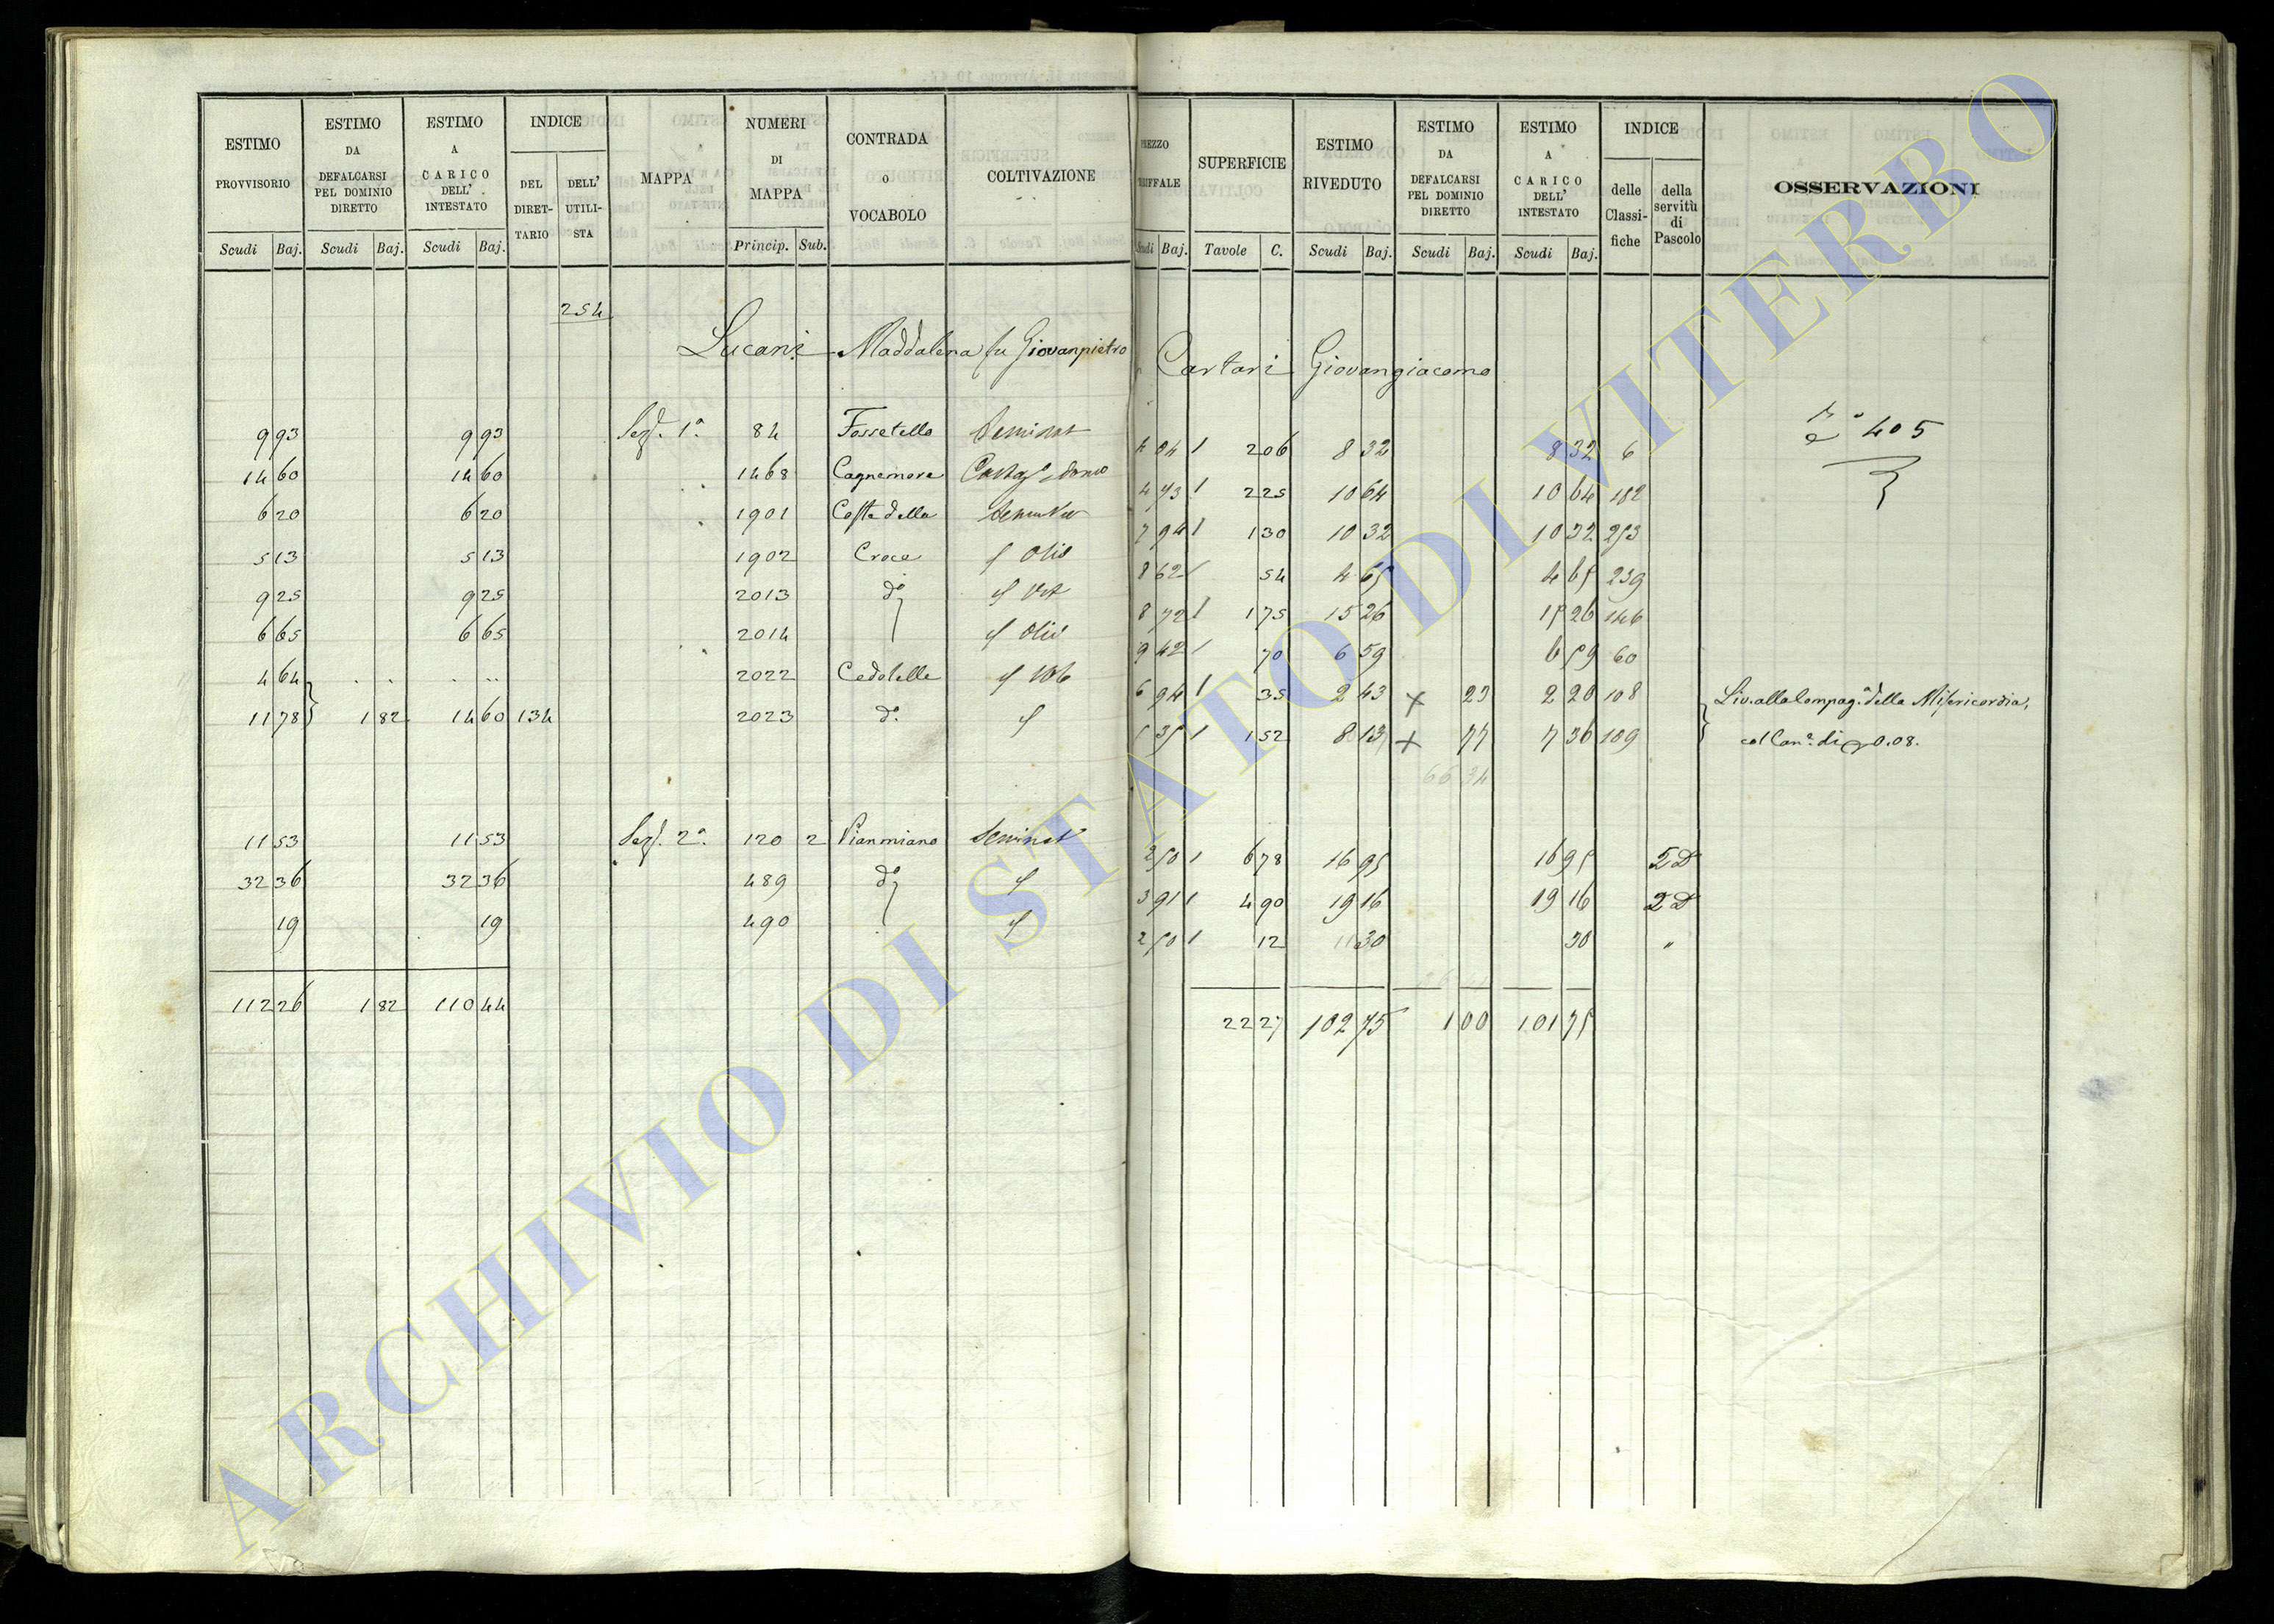 ESTIMO PROVVISORIO
ESTIMO DA DEFALCARSI PEL DOMINIO DIRETTO
ESTIMO A CARICO DELL' INTESTATO
INDICE
DEL DIRET-TARIO
DELL' UTILI-STA
MAPPA
NUMERI DI MAPPA
CONTRADA o VOCABOLO
COLTIVAZIONE
Scudi Baj. Scudi Baj. Scudi Baj. Princip. Sub.
254
Lucani Maddalena fu Giovanpietro
9 93 9 93 Sez. 1ª 84 Fossetello Seminat
14 60 14 60 1468 Cagnemora
6 20 6 20 1901 Costa della
5 13 5 13 1902 Croce Oliv
9 25 9 25 2013 dº Vit
6 65 6 65 2014 Oliv
4 64 2022 Cedolelle
11 78 1 82 14 60 134 2023 dº
11 53 11 53 Sez. 2ª 120 2 Pianmiano Seminat
32 36 32 36 489 dº
19 19 490
112 26 1 82 110 44
PREZZO TARIFFALE
SUPERFICIE
ESTIMO RIVEDUTO
ESTIMO DA DEFALCARSI PEL DOMINIO DIRETTO
ESTIMO A CARICO DELL' INTESTATO
INDICE
delle Classi-fiche
della servitù di Pascolo
OSSERVAZIONI
Scudi Baj. Tavole C. Scudi Baj. Scudi Baj. Scudi Baj.
Cartari Giovangiacomo
405
4 04 2 06 8 32 8 32 6
4 73 2 25 10 64 10 64 182
7 94 1 30 10 32 10 32 253
8 62 54 4 65 4 65 239
8 72 1 75 15 26 15 26 146
9 42 70 6 59 6 59 60
6 94 35 2 43 23 2 20 108 Liv. alla Compag. della Misericordia,
5 35 1 52 8 13 77 7 36 109 col Can. di 0.08.
66 34
2 50 6 78 16 95 16 95 5 D
3 91 4 90 19 16 19 16 2 D
2 50 12 30 30 "
22 27 102 75 1 00 101 75
ARCHIVIO DI STATO DI VITERBO